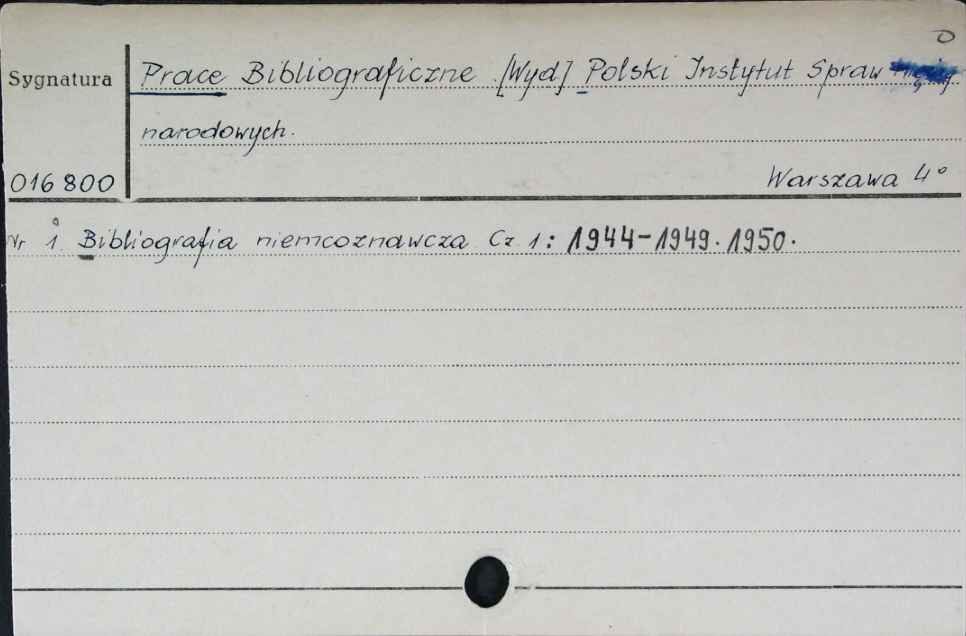 D
Sygnatura
Prace Bibliograficzne [Wyd] Polski Instytut Spraw
narodowych.
016 800
Warszawa 4°
Nr 1 Bibliografia niemcoznawcza Cz 1: 1944-1949. 1950.